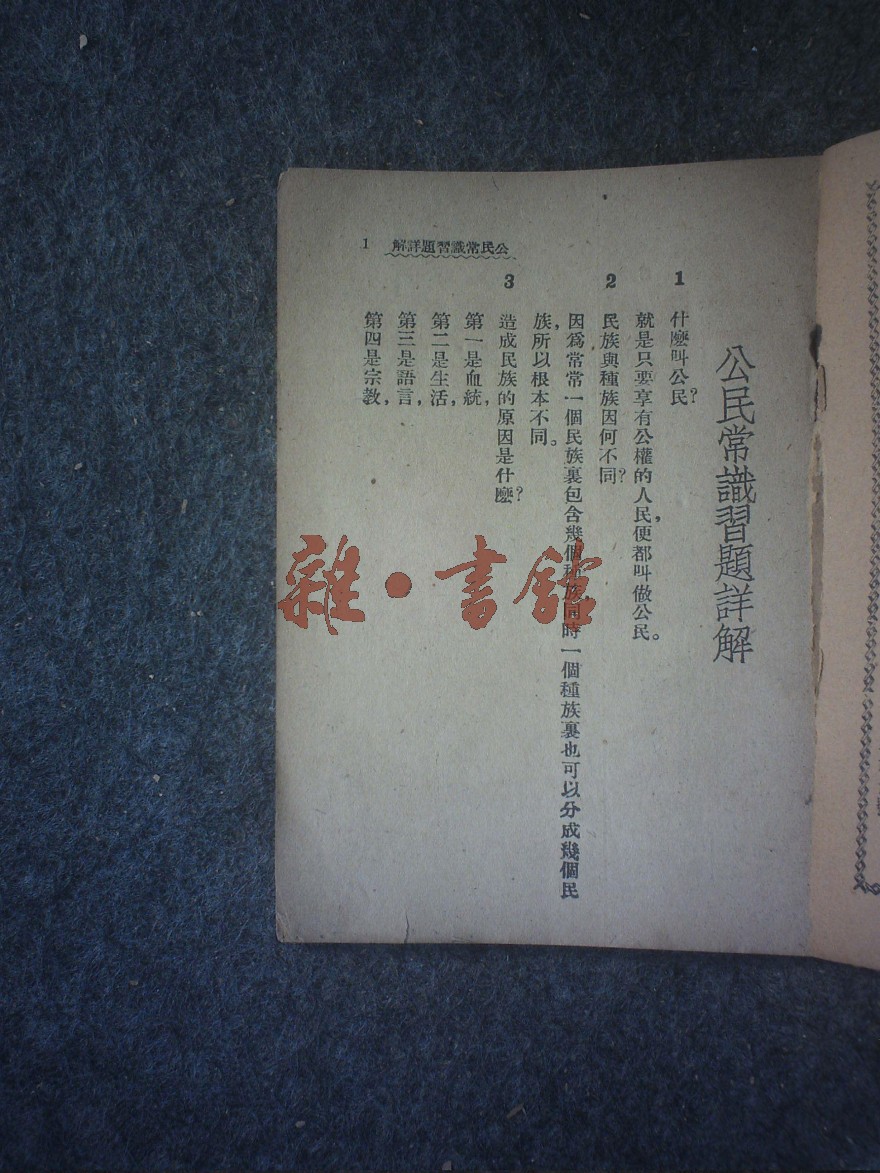 公民常識習題詳解
1 什麼叫公民？
就是只要享有公權的人民，便都叫做公民。
2 民族與種族因何不同？
因爲常常一個民族裏包含幾個種族，同時一個種族裏也可以分成幾個民
族，所以根本不同。
3 造成民族的原因是什麼？
第一是血統，
第二是生活，
第三是語言，
第四是宗教，
公民常識習題詳解 1
雜·書館